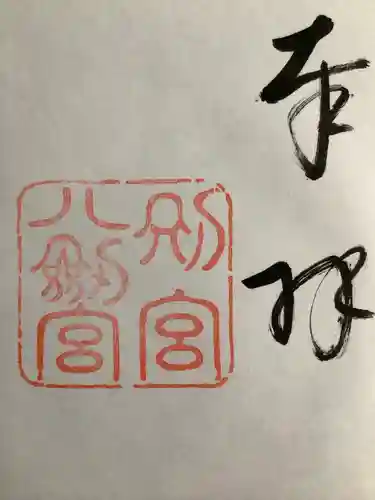 奉拝
別宮
八剱宮